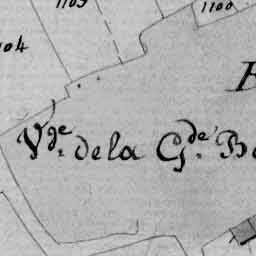 1103
1100
1104
V.de de la G.de B